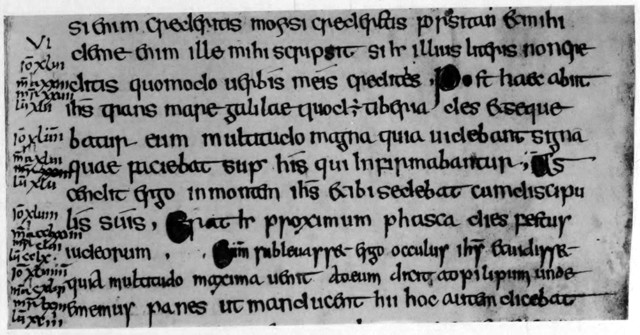 si enim crederitis mossi crederitis forsitan & mihi
deme enim ille mihi scripsit si ƕ illius literis non cre
ditis quomodo uerbis meis credites, Post haec abiit
ihs trans mare galilae quod ÷ tiberia des & seque
batur eum multitudo magna quia uidebant signa
quae faciebat sup his qui Infirmabantur, As
cendit ergo in montem ihs & ibi sedebat cum discipu
lis suis, Erat ƕ proximum phasca dies festus
iudeorum, Cum subleuasset ergo occulus ihs & uidisset
quia multitudo maxima uenit ad eum dicit ad pilipum unde
ememus panes ut manducent hii hoc autem dicebat